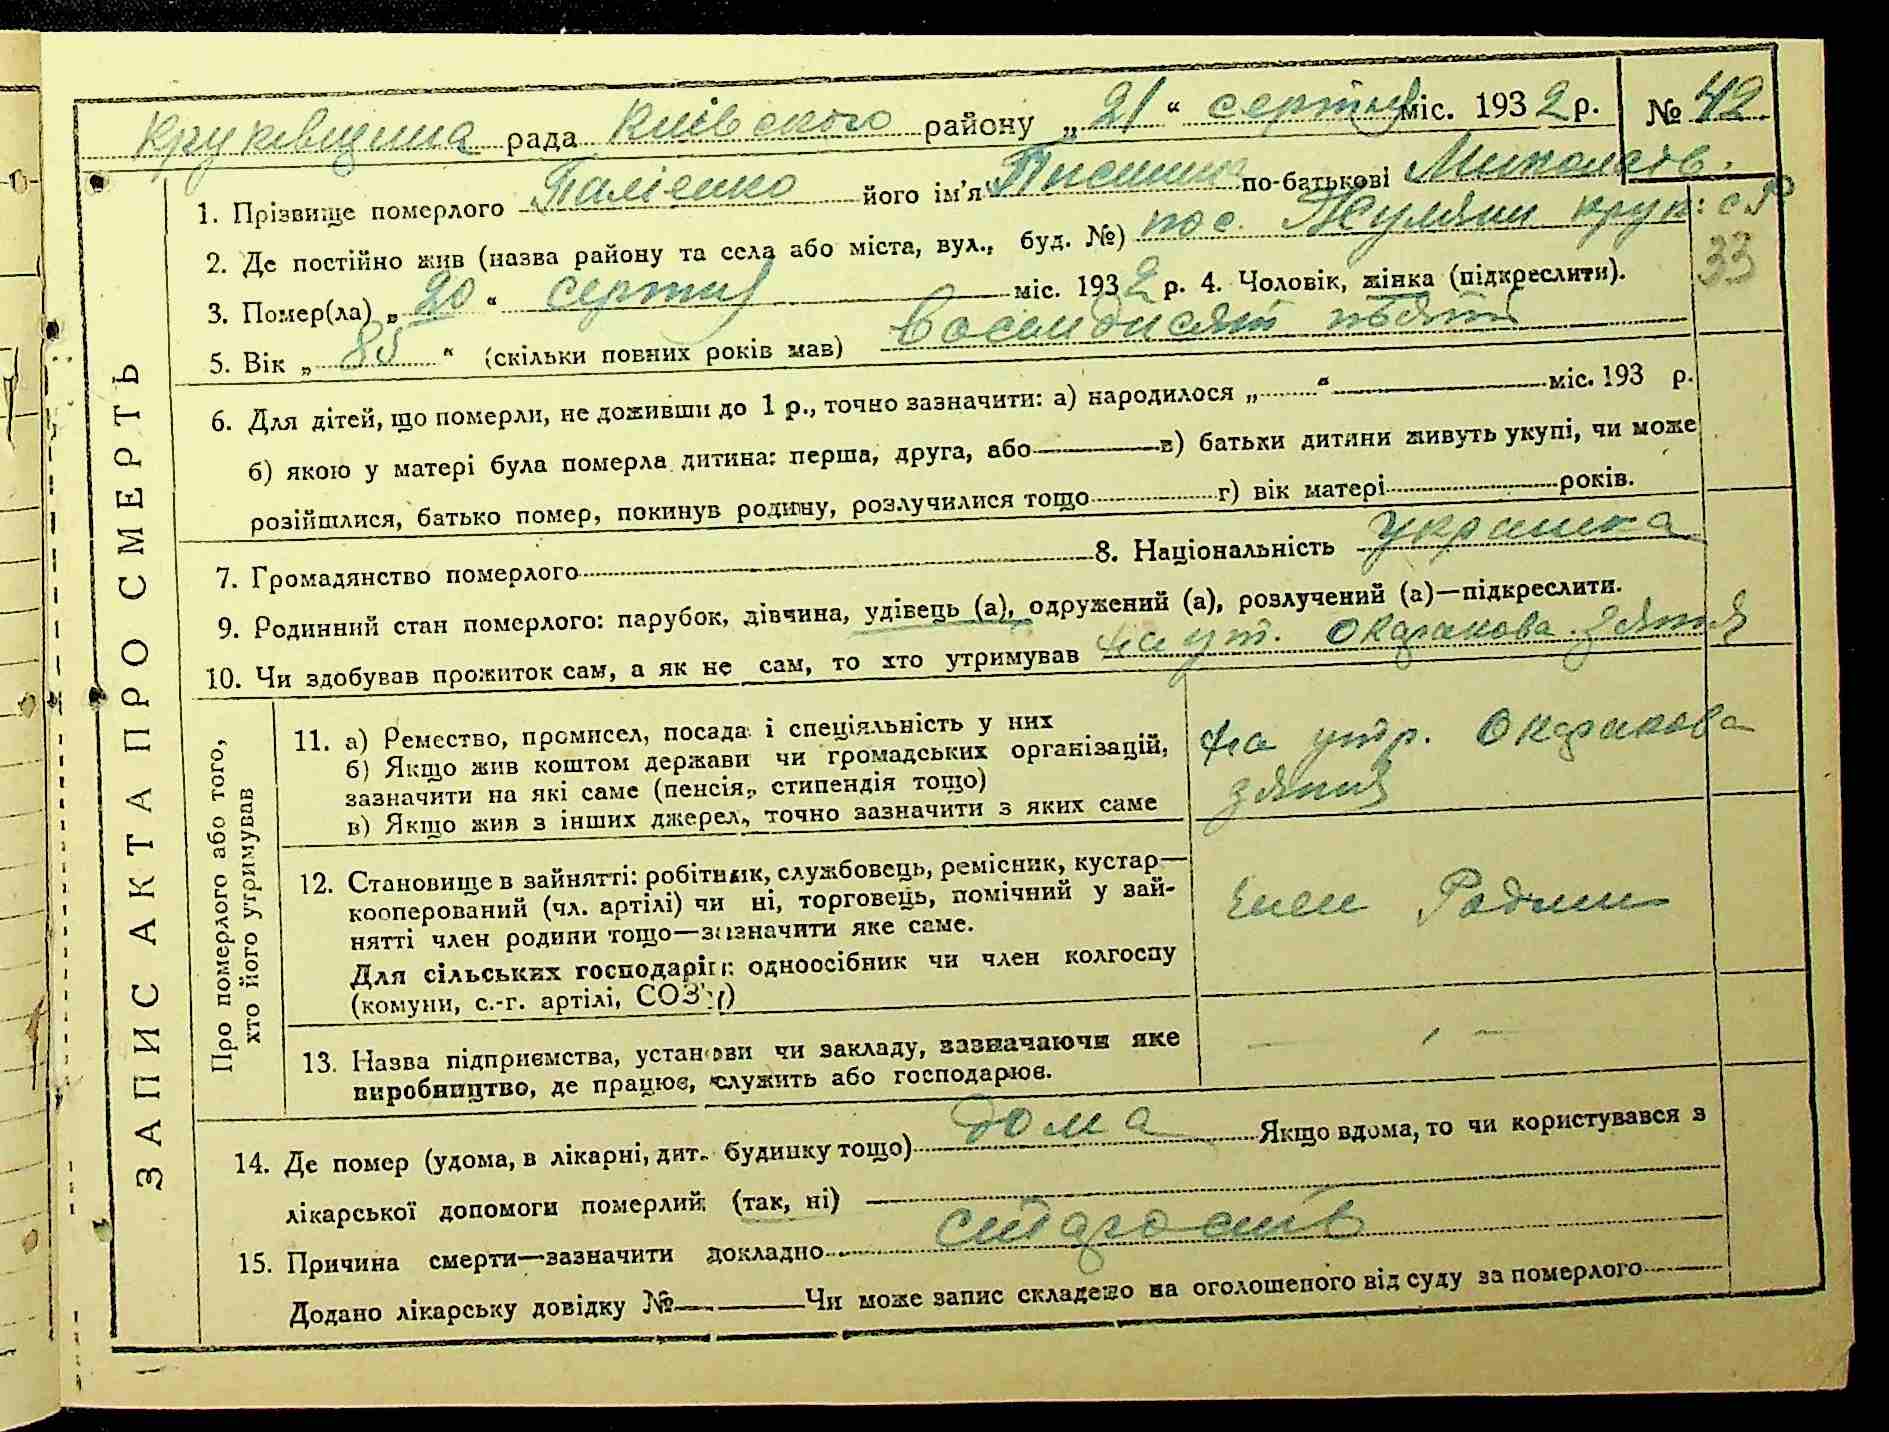 Круківщина рада Київського району „21“ серпня міс. 1932 р. № 42
1. Прізвище померлого Палієнко його ім'я по-батькові Миколаєв.
2. Де постійно жив (назва району та села або міста, вул., буд. №) пос. Жуляни крук: с/р
33
3. Помер(ла) „20“ серпня міс. 1932 р. 4. Чоловік, жінка (підкреслити).
5. Вік „85“ (скільки повних років мав) восемдисят пъять
6. Для дітей, що померли, не доживши до 1 р., точно зазначити: а) народилося „ “ міс. 193 р.
б) якою у матері була померла дитина: перша, друга, або в) батьки дитини живуть укупі, чи може
розійшлися, батько помер, покинув родину, розлучилися тощо г) вік матері років.
7. Громадянство померлого 8. Національність украинка
9. Родинний стан померлого: парубок, дівчина, удівець (а), одружений (а), розлучений (а)—підкреслити.
10. Чи здобував прожиток сам, а як не сам, то хто утримував на ут. зятя
ЗАПИС АКТА ПРО СМЕРТЬ
Про померлого або того,
хто його утримував
11. а) Ремество, промисел, посада і спеціяльність у них
б) Якщо жив коштом держави чи громадських організацій,
зазначити на які саме (пенсія, стипендія тощо)
в) Якщо жив з інших джерел, точно зазначити з яких саме
на утр.
зятя
12. Становище в зайнятті: робітник, службовець, ремісник, кустар—
кооперований (чл. артілі) чи ні, торговець, помічний у зай-
нятті член родини тощо—зазначити яке саме.
Для сільських господарів: одноосібник чи член колгоспу
(комуни, с.-г. артілі, СОЗ'у)
член Родини
13. Назва підприємства, установи чи закладу, зазначаючи яке
виробництво, де працює, служить або господарює.
14. Де помер (удома, в лікарні, дит. будинку тощо) дома Якщо вдома, то чи користувався з
лікарської допомоги померлий (так, ні)
15. Причина смерти—зазначити докладно старость
Додано лікарську довідку № Чи може запис складено на оголошеного від суду за померлого